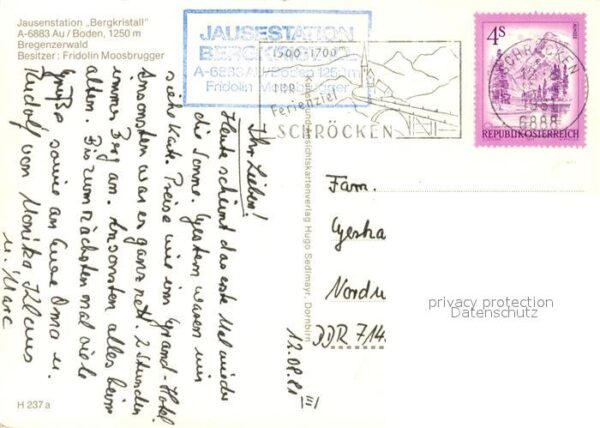 Jausenstation „Bergkristall"
A-6883 Au/Boden, 1250 m
Bregenzerwald
Besitzer: Fridolin Moosbrugger
JAUSESTATION
BERGKRISTALL
A-6883 AU/Boden 1250m
Fridolin Moosbrugger
1500-1700m
IHR
Ferienziel
SCHRÖCKEN
4S
REPUBLIK ÖSTERREICH
SCHRÖCKEN
6888
12.08.81
Ihr Lieben!
Heute scheint das erste Mal wieder
die Sonne. Gestern waren wir
siehe Karte. Preise wie im Grand-Hotel
Ansonsten war es ganz nett. 2 Stunden
immer Berg an. Ansonsten alles beim
alten. Bis zum nächsten mal viele
Grüße sowie an Eure Oma u.
Rudolf von Monika Klaus
u. Marc
Ansichtskartenverlag Hugo Sedlmayr, Dornbirn
Fam.
Geska
Nordu
DDR 714
privacy protection
Datenschutz
H 237a